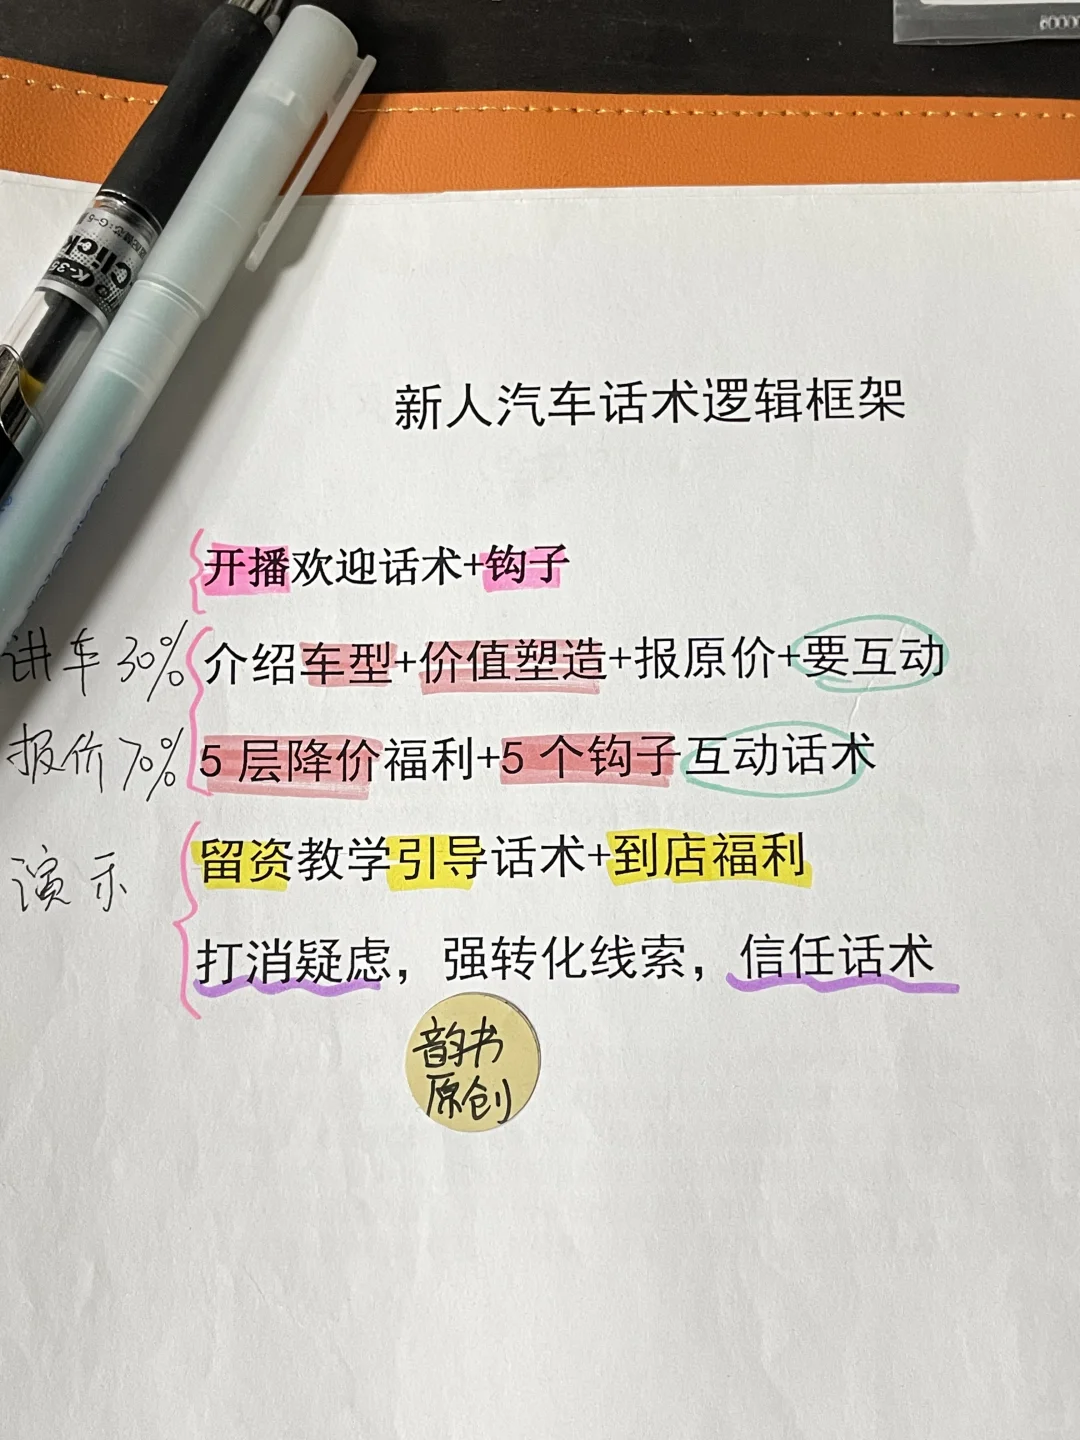 新人汽车话术逻辑框架
开播欢迎话术+钩子
讲车30%
介绍车型+价值塑造+报原价+要互动
报价70%
5层降价福利+5个钩子互动话术
演示
留资教学引导话术+到店福利
打消疑虑，强转化线索，信任话术
韵书
原创
Click
K-35